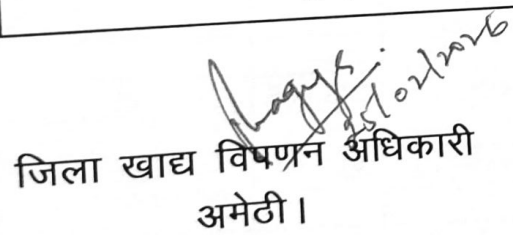 25/02/2026
जिला खाद्य विपणन अधिकारी
अमेठी।